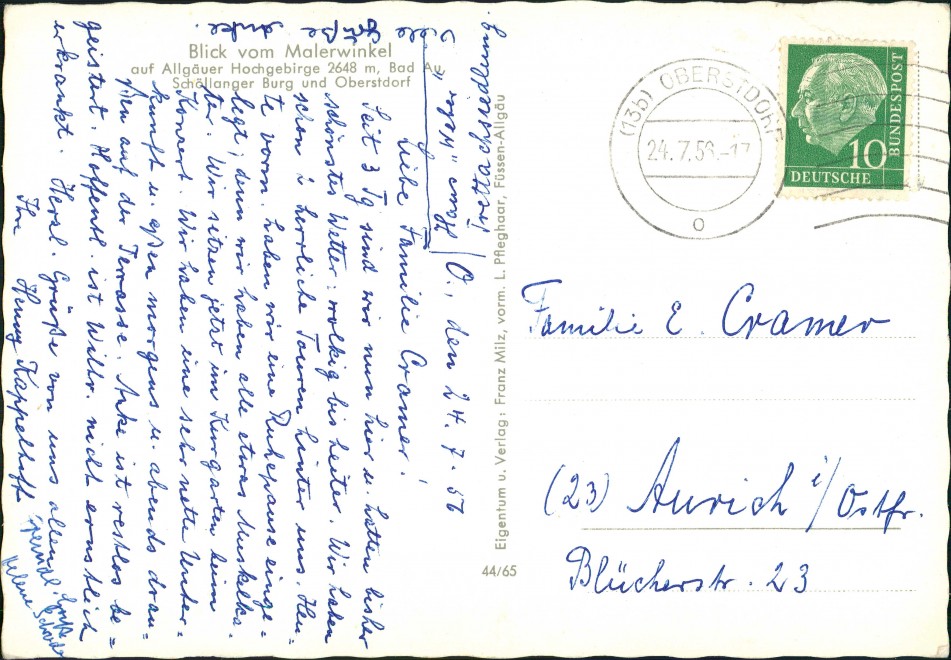 Blick vom Malerwinkel
auf Allgäuer Hochgebirge 2648 m, Bad Au,
Schöllanger Burg und Oberstdorf
Trettachsiedlung
O., den 24.7.56
Liebe Familie Cramer!
Seit 3 Tg sind wir nun hier u. hatten bisher
schönstes Wetter: wolkig bis heiter. Wir haben
schon 2 herrliche Touren hinter uns. Heu=
te vorm. haben wir eine Ruhepause einge=
legt, denn wir haben alle etwas Muskelka=
ter. Wir sitzen jetzt im Kurgarten beim
Konzert. Wir haben eine sehr nette Unter=
kunft u. essen morgens u. abends drau=
ßen auf der Terrasse. Anke ist restlos be=
geistert. Hoffentl. ist Wilh. nicht ernstlich
erkrankt. Herzl. Grüße von uns allen!
Ihr Henny Kappelhoff
Freundl. Grüße
Helene Schmidt
Viele
Grüße
Anke.
Eigentum u. Verlag: Franz Milz, vorm. L. Pfleghaar, Füssen-Allgäu
44/65
(13b) OBERSTDORF
24.7.56.-17
o
10
DEUTSCHE
BUNDESPOST
Familie E. Cramer
(23) Aurich i/Ostfr.
Blücherstr. 23